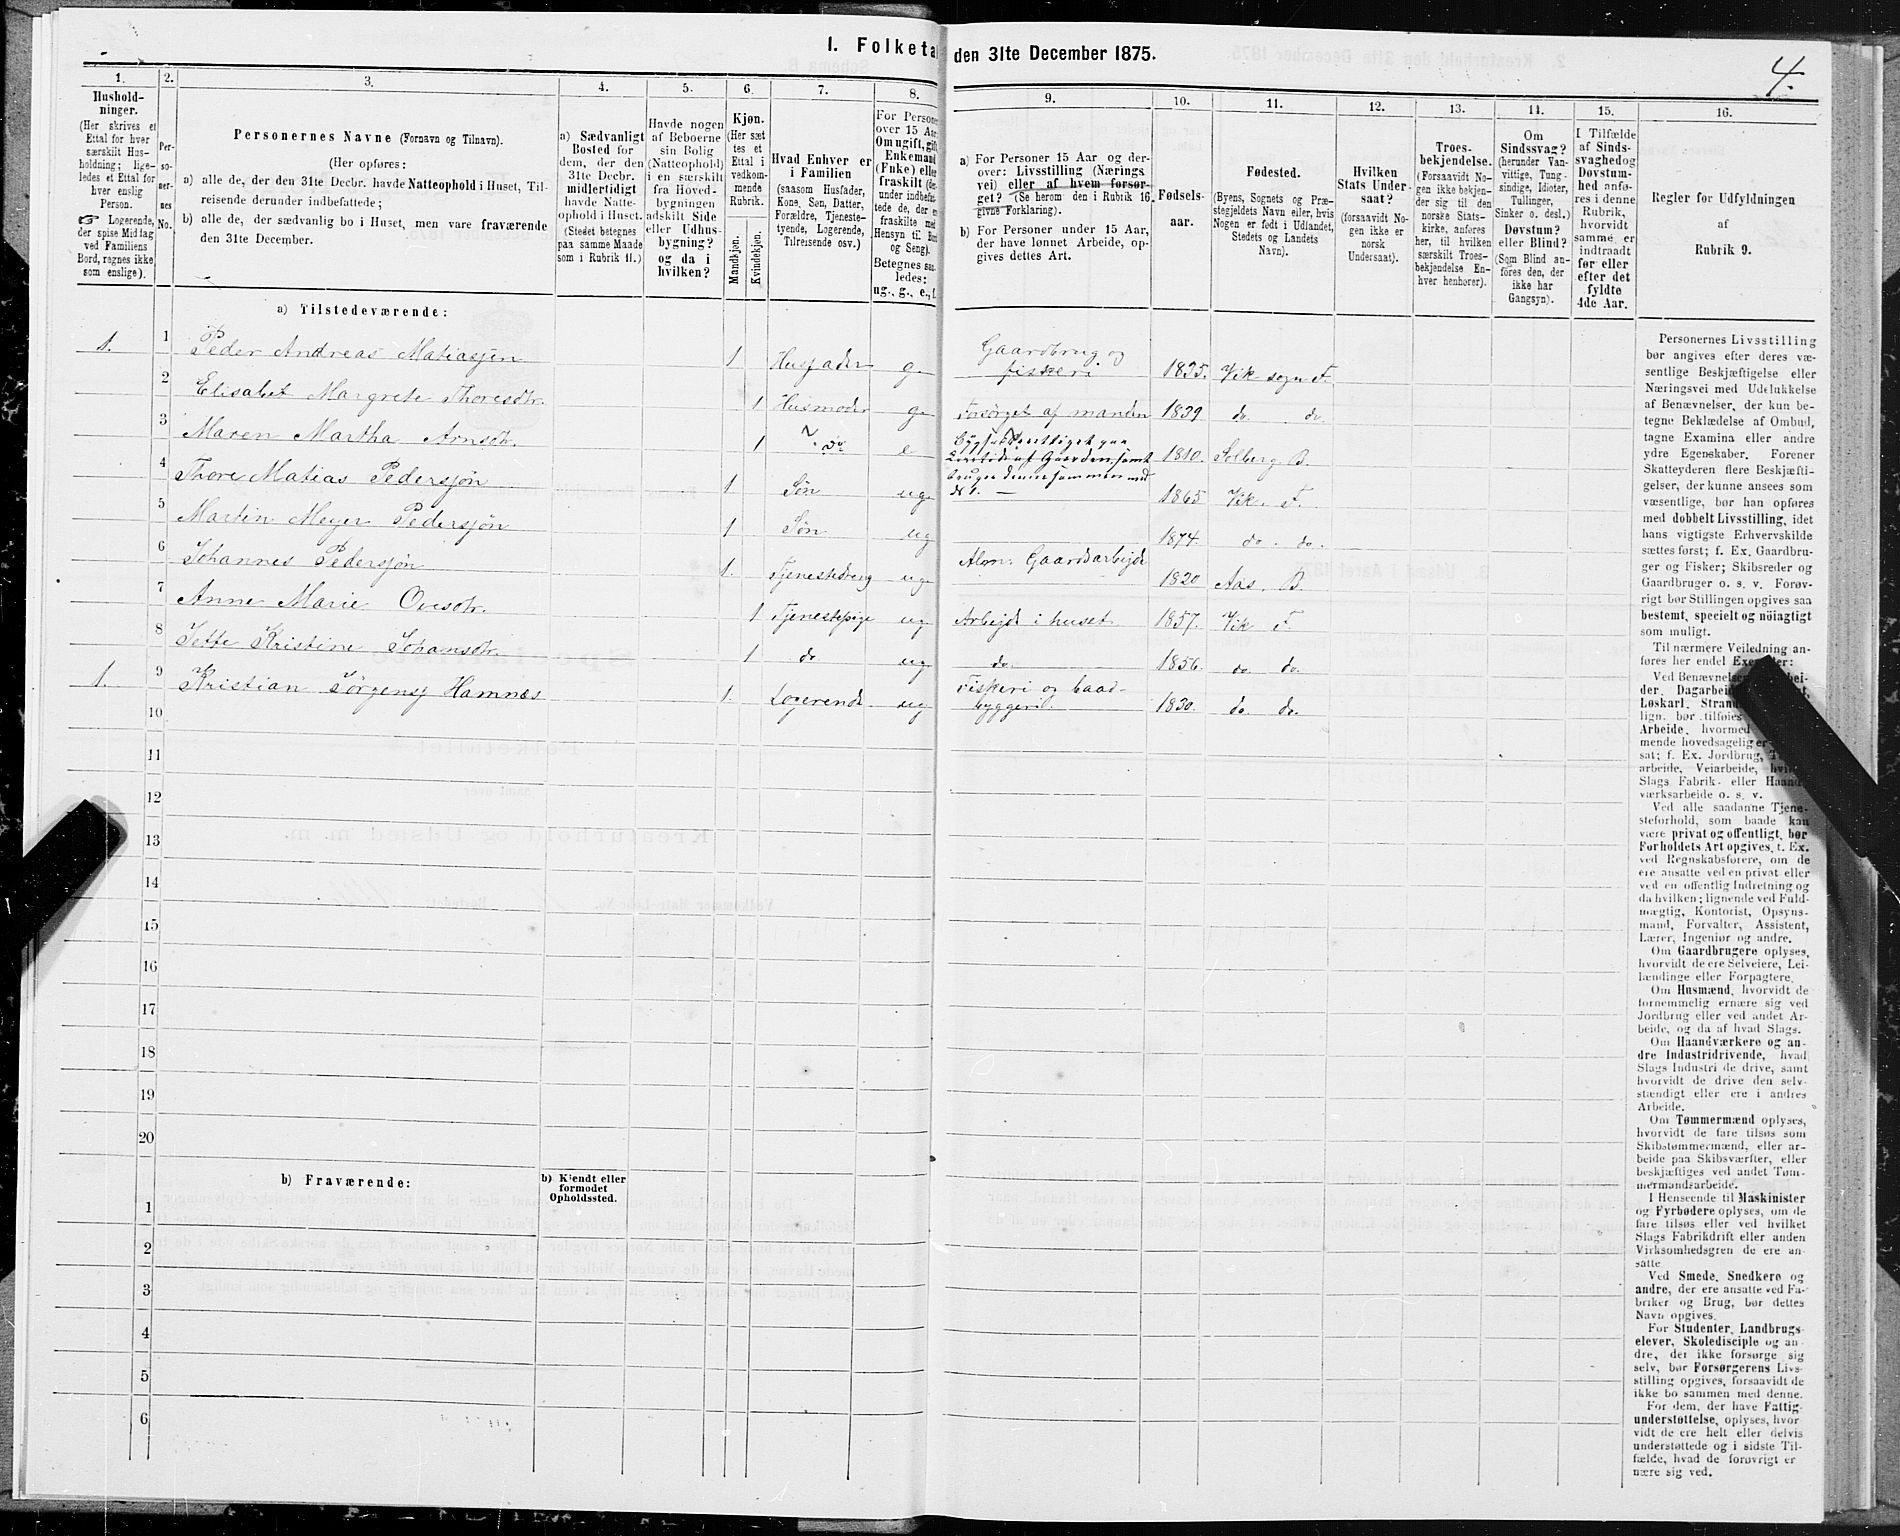 I. Folketæ
den 31te December 1875.
4.
1.
2.
3.
4.
5.
6.
7.
8.
9.
10.
11.
12.
13.
14.
15.
16.
Hushold-
ninger.
(Her skrives et
Ettal for hver
særskilt Hus-
holdning; lige-
ledes et Ettal for
hver enslig
Person.
☞ Logerende,
der spise Middag
ved Familiens
Bord, regnes ikke
som enslige).
Per-
so-
ner-
nes
No.
Personernes Navne (Fornavn og Tilnavn).
(Her opføres:
a) alle de, der den 31te Decbr. havde Natteophold i Huset, Til-
reisende derunder indbefattede;
b) alle de, der sædvanlig bo i Huset, men vare fraværende
den 31te December.
a) Sædvanligt
Bosted for
dem, der den
31te Decbr.
midlertidigt
havde Natte-
ophold i Huset.
(Stedet betegnes
paa samme Maade
som i Rubrik 11.)
Havde nogen
af Beboerne
sin Bolig
(Natteophold)
i en særskilt
fra Hoved-
bygningen
adskilt Side
eller Udhus-
bygning?
og da i
hvilken?
Kjøn.
(Her sæt-
tes et
Ettal i
vedkom-
mende
Rubrik.
Mandkjøn.
Kvindekjøn.
Hvad Enhver er
i Familien
(saasom Husfader,
Kone, Søn, Datter,
Forældre, Tjeneste-
tyende, Logerende,
Tilreisende osv.)
For Persone
over 15 Aar
Om ugift, gift
Enkemand
(Enke) eller
fraskilt (der-
under indbefat-
tede de, der er
fraskilte med
Hensyn til Bord
og Seng).
Betegnes saa-
ledes:
ug., g., e., f.
a) For Personer 15 Aar og der-
over: Livsstilling (Nærings-
vei) eller af hvem forsør-
get? (Se herom den i Rubrik 16
givne Forklaring).
b) For Personer under 15 Aar,
der have lønnet Arbeide, op-
gives dettes Art.
Fødsels-
aar.
Fødested.
(Byens, Sognets og Præ-
stegjeldets Navn eller, hvis
Nogen er født i Udlandet,
Stedets og Landets
Navn).
Hvilken
Stats Under-
saat?
(forsaavidt No-
gen ikke er
norsk
Undersaat).
Troes-
bekjendelse.
(Forsaavidt No-
gen ikke bekjen-
der sig til den
norske Stats-
kirke, anføres
her, til hvilken
særskilt Troes-
bekjendelse En-
hver henhører).
Om
Sindssvag?
(herunder Van-
vittige, Tung-
sindige, Idioter,
Tullinger,
Sinker o. desl.)
Døvstum?
eller Blind?
(Som Blind an-
føres den, der
ikke har
Gangsyn).
I Tilfælde
af Sinds-
svaghed og
Døvstum-
hed anfø-
res i denne
Rubrik,
hvorvidt
samme er
indtraadt
før eller
efter det
fyldte
4de Aar.
Regler for Udfyldningen
af
Rubrik 9.
a) Tilstedeværende:
1. 1 Peder Andreas Matiasjen 1 Husfader g. Gaardbrug og fiskeri 1835. Vik sogn F.
2 Elisabet Margrete Thoresdtr. 1 Husmoder g. Forsörget af manden 1839 do. do.
3 Maren Martha Arnsdtr. 1 do e 1810. Solberg B.
4 Thore Matias Pedersjön 1 Søn ug. 1865 Vik. F.
5 Martin Meyer Pedersjön 1 Søn ug 1874. do. do.
6 Johannes Pedersjön 1. Tjenestedreng ug. Alm. Gaardsarbejde 1820 Aas. B.
7 Anne Marie Ovesdtr. 1 Tjenestepige ug. Arbejde i huset 1857. Vik F.
8 Jette Kristine Johansdtr. 1 do ug. do. 1856. do. do.
1. 9 Kristian Jörgensj Hamnæs 1. Logerende ug Fiskeri og baad-
byggeri. 1830. do. do.
10
11
12
13
14
15
16
17
18
19
20
b) Fraværende:
b) Kjendt eller
formodet
Opholdssted.
1
2
3
4
5
6
Personernes Livsstilling
bør angives efter deres væ-
sentlige Beskjæftigelse eller
Næringsvei med Udelukkelse
af Benævnelser, der kun be-
tegne Beklædelse af Ombud,
tagne Examina eller andre
ydre Egenskaber. Forener
Skatteyderen flere Beskjæfti-
gelser, der kunne ansees som
væsentlige, bør han opføres
med dobbelt Livsstilling, idet
hans vigtigste Erhvervskilde
sættes først; f. Ex. Gaardbru-
ger og Fisker; Skibsreder og
Gaardbruger o. s. v. Forøv-
rigt bør Stillingen opgives saa
bestemt, specielt og nöiagtigt
som muligt.
Til nærmere Veiledning an-
føres her endel Exempler:
Ved Benævnelsen
der, Dagarbei
Løskarl, Strand
lign. bør tilføies
Arbeide, hvormed
mende hovedsagelig er
sat; f. Ex. Jordbrug,
arbeide, Veiarbeide,
Slags Fabrik- eller Haand-
værksarbeide o. s. v.
Ved alle saadanne Tjene-
steforhold, som baade kan
være privat og offentligt, bør
Forholdets Art opgives, f. Ex.
ved Regnskabsførere, om de
ere ansatte ved en privat eller
ved en offentlig Indretning og
da hvilken; lignende ved Fuld-
mægtig, Kontorist, Opsyns-
mand, Forvalter, Assistent,
Lærer, Ingeniør og andre.
Om Gaardbrugere oplyses,
hvorvidt de ere Selveiere, Lei-
lændinge eller Forpagtere.
Om Husmænd, hvorvidt de
fornemmelig ernære sig ved
Jordbrug eller ved andet Ar-
beide, og da af hvad Slags.
Om Haandværkere og an-
dre Industridrivende, hvad
Slags Industri de drive, samt
hvorvidt de drive den selv-
stændigt eller ere i andres
Arbeide.
Om Tømmermænd oplyses,
hvorvidt de fare tilsøs som
Skibstømmermænd, eller ar-
beide paa Skibsværfter, eller
beskjæftiges ved andet Tøm-
mermandsarbeide.
I Henseende til Maskinister
og Fyrbødere oplyses, om de
fare tilsøs eller ved hvilket
Slags Fabrikdrift eller anden
Virksomhedsgren de ere an-
satte
Ved Smede, Snedkere og
andre, der ere ansatte ved Fa-
briker og Brug, bør dettes
Navn opgives.
For Studenter, Landbrugs-
elever, Skoledisciple og an-
dre, der ikke forsørge sig
selv, bør Forsørgerens Livs-
stilling opgives, forsaavidt de
ikke bo sammen med denne.
For dem, der have Fattig-
understøttelse, oplyses, hvor-
vidt de ere helt eller delvis
understøttede og i sidste Til-
fælde, hvad de forøvrigt er
nære sig ved.